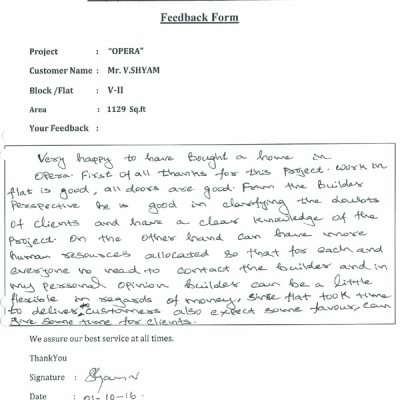 Feedback Form
Project : "OPERA"
Customer Name : Mr. V.SHYAM
Block /Flat : V-II
Area : 1129 Sq.ft
Your Feedback :
Very happy to have Bought a home in
OPERA. First of all thanks for this project. work in
flat is good, all doors are good. From the Builder
Perspective he is good in clarifying the doubts
of clients and have a clear knowledge of the
Project. On the other hand can have more
human resources allocated so that for each and
everyone no need to contact the builder and in
my personal opinion builder can be a little
flexible in regards of money, since flat took time
to deliver, customers also expect some favour, can
give some time for clients.
We assure our best service at all times.
ThankYou
Signature : Shyam V
Date : 01-10-16.